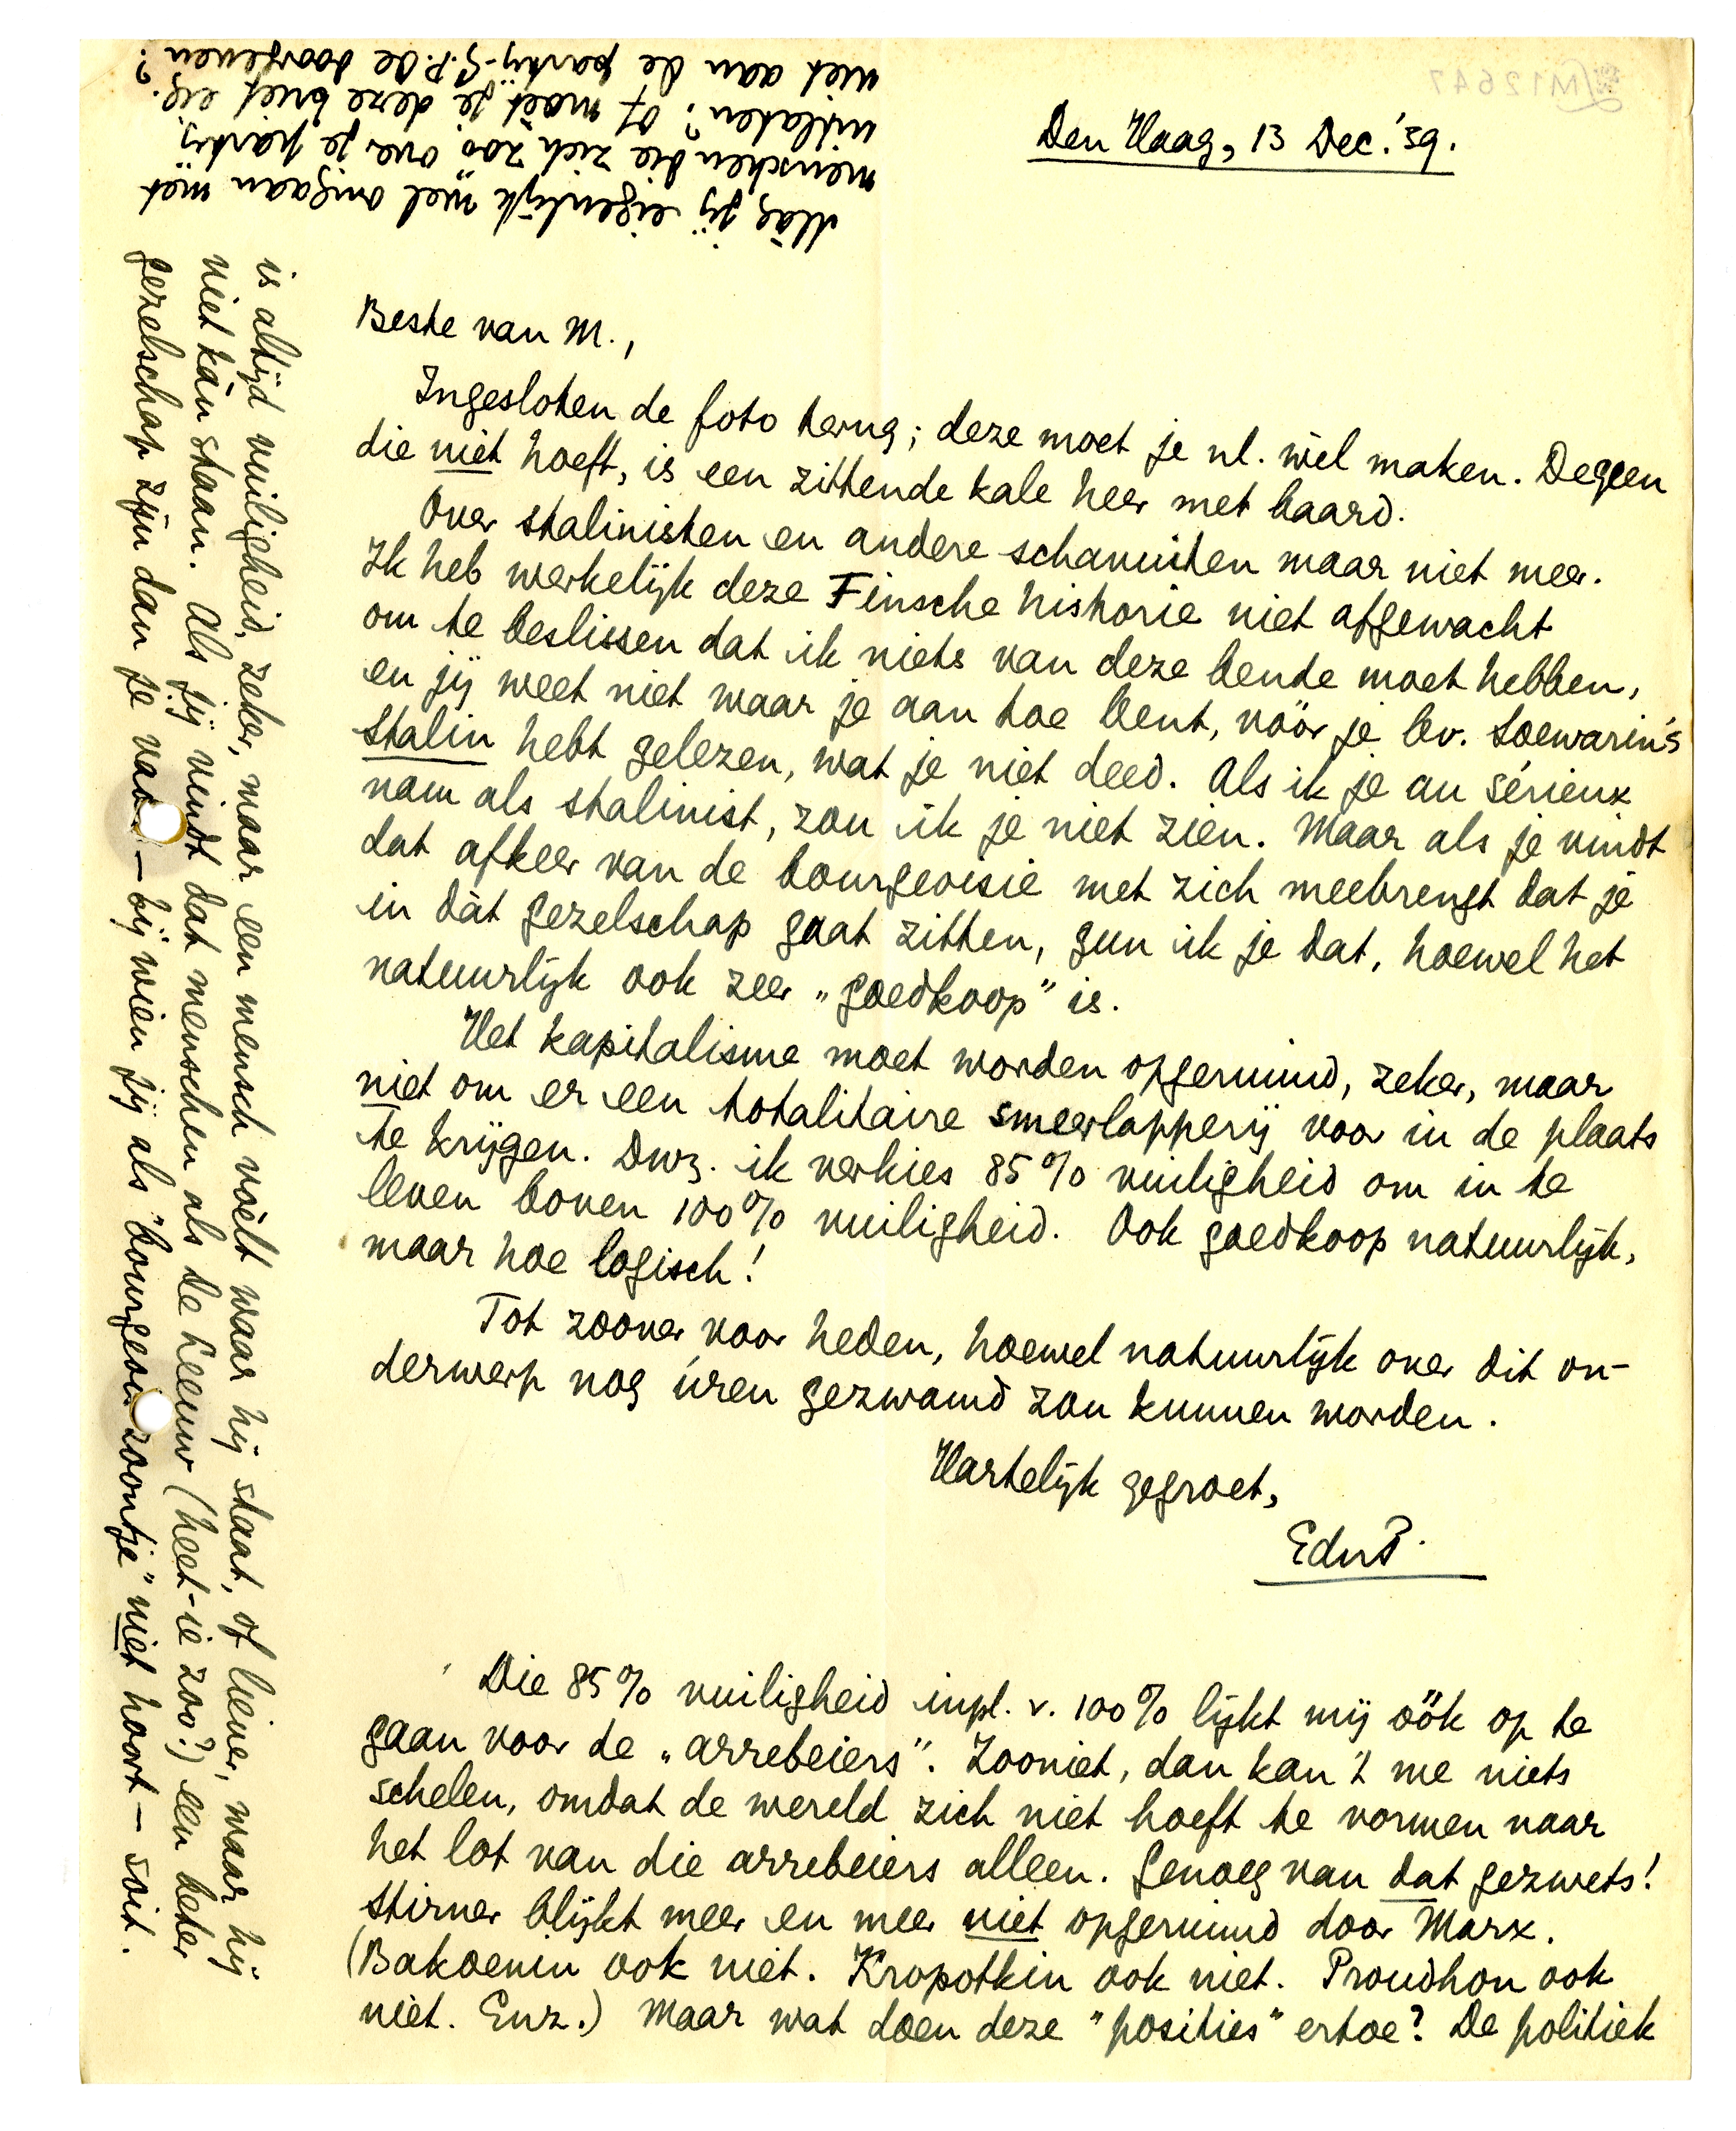 Den Haag, 13 Dec. '39.
Beste van M.,
Ingesloten de foto terug; deze moet je nl. wèl maken. Degeen
die niet hoeft, is een zittende kale heer met baard.
Over stalinisten en andere schavuiten maar niet meer.
Ik heb werkelijk deze Finsche historie niet afgewacht
om te beslissen dat ik niets van deze bende moet hebben,
en jij weet niet waar je aan toe bent, vóór je bv. Soewarin's
Stalin hebt gelezen, wat je niet deed. Als ik je au sérieux
nam als stalinist, zou ik je niet zien. Maar als je vindt
dat afkeer van de bourgeoisie met zich meebrengt dat je
in dàt gezelschap gaat zitten, gun ik je dat, hoewel het
natuurlijk ook zeer „goedkoop" is.
Het kapitalisme moet worden opgeruimd, zeker, maar
niet om er een totalitaire smeerlapperij voor in de plaats
te krijgen. Dwz. ik verkies 85% vuiligheid om in te
leven boven 100% vuiligheid. Ook goedkoop natuurlijk,
maar hoe logisch!
Tot zoover voor heden, hoewel natuurlijk over dit on-
derwerp nog úren gezwamd zou kunnen worden.
Hartelijk gegroet,
EduP.
Die 85% vuiligheid inpl. v. 100% lijkt mij óók op te
gaan voor de „arrebeiers". Zooniet, dan kan 't me niets
schelen, omdat de wereld zich niet hoeft te vormen naar
het lot van die arrebeiers alleen. Genoeg van dat gezwets!
Stirner blijkt meer en meer niet opgeruimd door Marx.
(Bakoenin ook niet. Kropotkin ook niet. Proudhon ook
niet. Enz.) Maar wat doen deze "posities" ertoe? De politiek
is altijd vuiligheid, zeker, maar een mensch voèlt waar hij staat, of liever, waar hij
niet kàn staan. Als jij vindt dat menschen als de Leeuw (heet-ie zoo?) een beter
gezelschap zijn dan je – bij wien jij als "bourgeois zoontje" niet hoort – soit.
Màg jij eigenlijk wel omgaan met
menschen die zich zóó over je partij
uitlaten? Of moèt je deze brief eig.
niet aan de partij-G.P.Oe doorgeven?
M12647